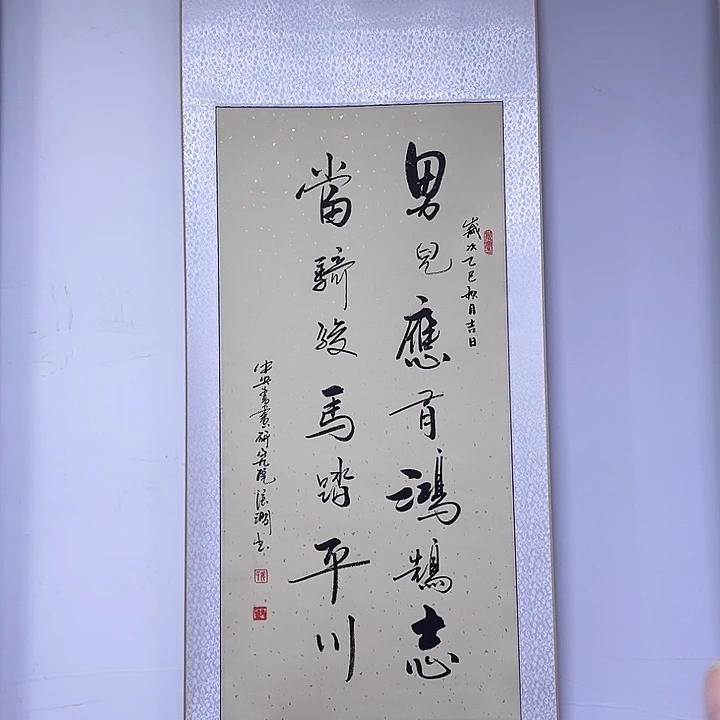 歲次乙巳如月吉日
男兒應有鴻鵠志
當騎駿馬踏平川
中央書畫研究院